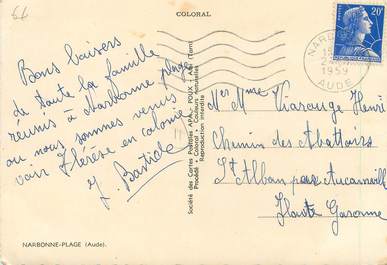 COLORAL
56
Bons baisers
de toute la famille
réunis à Narbonne plage
ou nous sommes venus
voir Thérèse en colonie
J. Bastide
NARBONNE-PLAGE (Aude).
Société des Cartes Postales APA - POUX - Albi (Tarn)
Procédé « Coloral » Couleurs naturelles
Reproduction interdite
20F
1959
AUDE
Mr Mme Viarouge Henri
Chemin des Abattoirs
St Alban par Aucamville
Haute Garonne